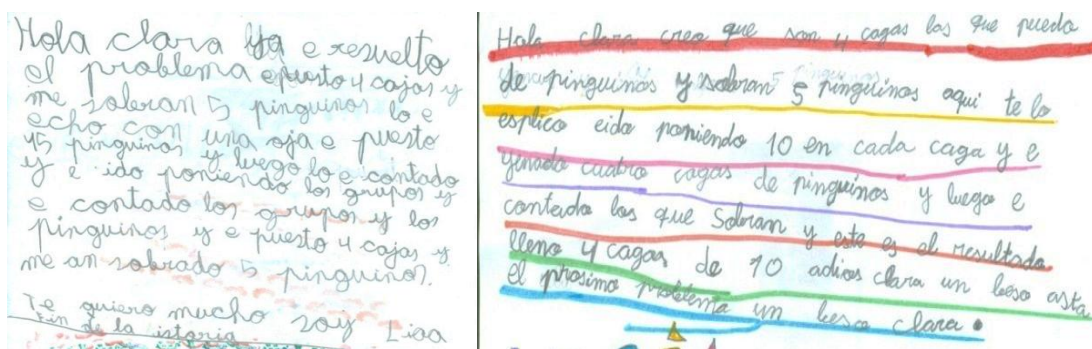 Hola clara ya e resuelto
el problema e puesto 4 cajas y
me sobran 5 pinguinos lo e
echo con una oja e puesto
45 pinguinos y luego lo e contado
y e ido poniendo los grupos y
e contado los grupos y los
pinguinos y e puesto 4 cajas y
me an sobrado 5 pinguinos.
Te quiero mucho soy Lisa
Fin de la istoria
Hola clara creo que son 4 cagas las que puedo
de pinguinos y sobran 5 pingüinos aqui te lo
esplico eido poniendo 10 en cada caga y e
yenado cuatro cagas de pinguinos y luego e
contado los que Sobran y este es el resultado
lleno 4 cagas de 10 adios clara un beso asta
el prosimo problema un beso clara.